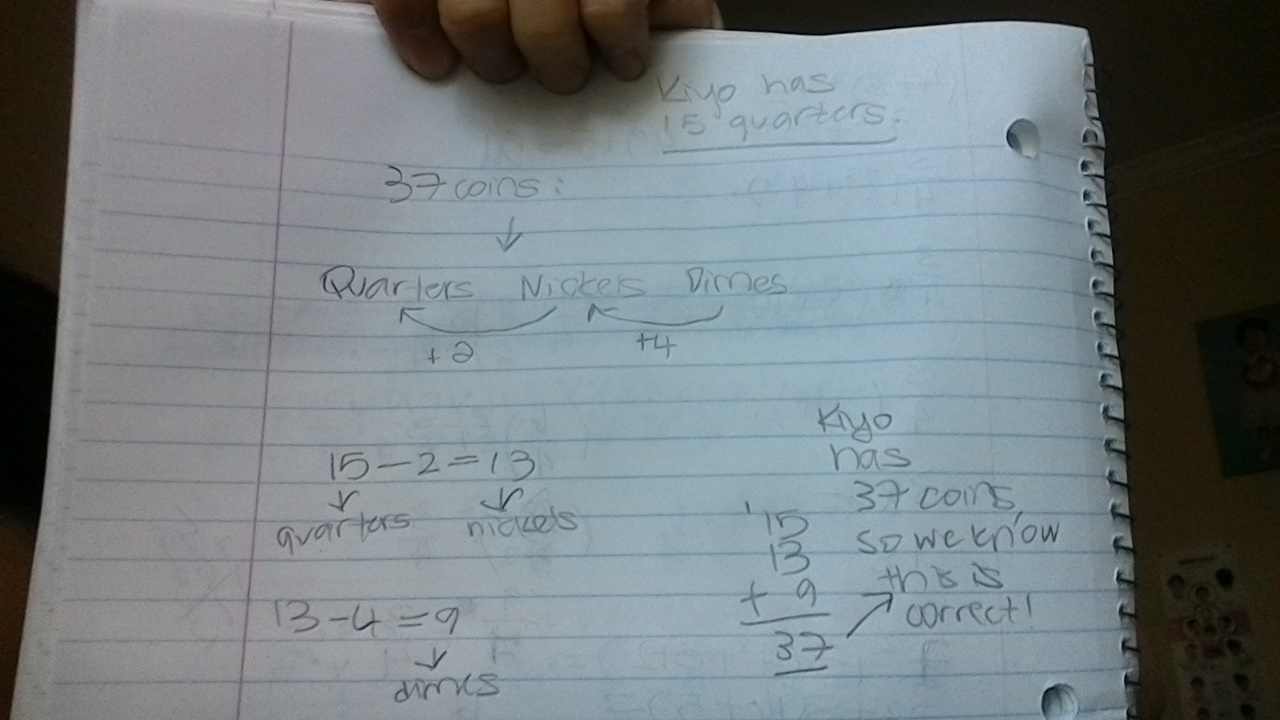 Kiyo has
15 quarters.
37 coins:
↓
Quarters Nickels Dimes
+2 +4
15-2=13
quarters nickels
13-4=9
dimes
Kiyo
has
37 coins,
so we know
this is
correct!
1
15
13
+ 9
37